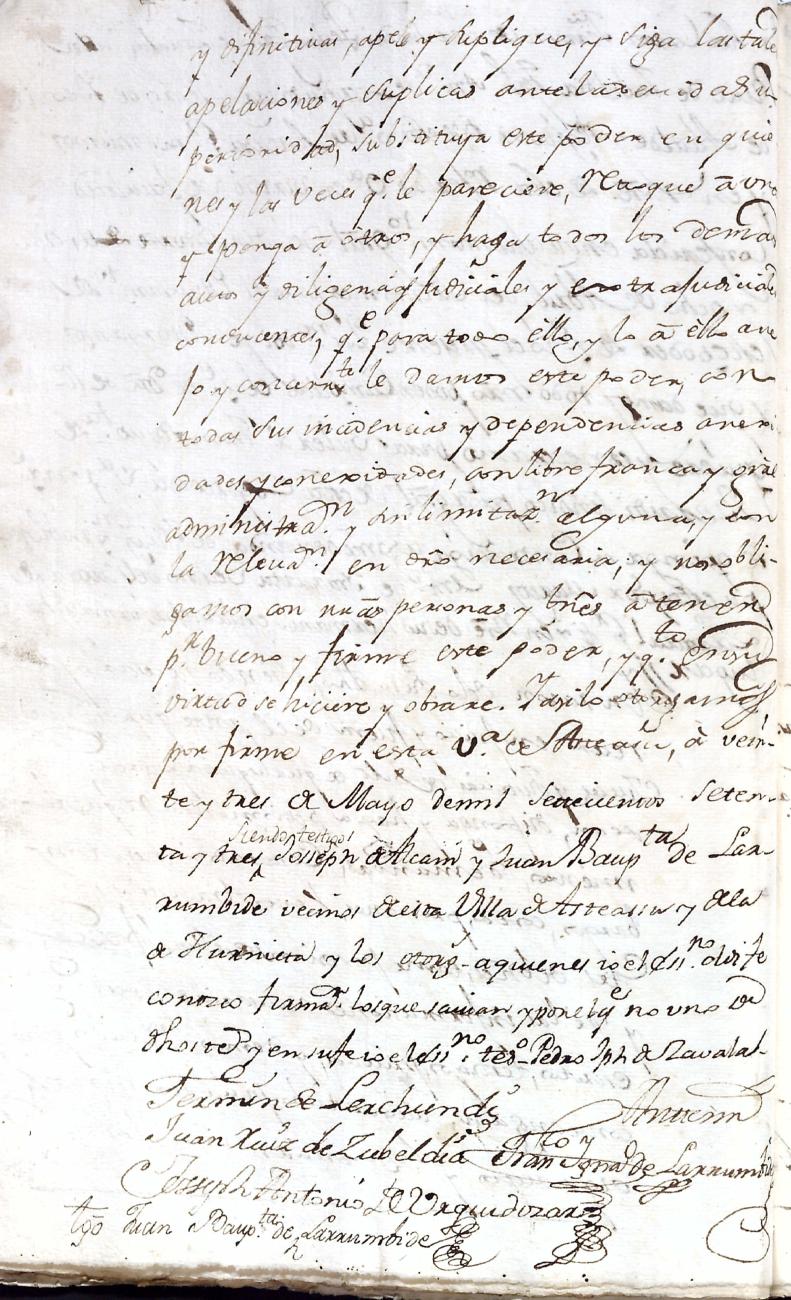 y difinitivas, apele y suplique, y siga las tale
apelaciones y suplicas ante la seuida Su
perioridad, substituya este poder en quie
nes y las veces q.e le pareciere, reboque â uno
y ponga â otros, y haga todos los demas
autos y diligencias Judiciales y extrajudiciales
que para todo ello, y lo â ello ane
jo y concern.te le damos este poder, con
todas sus incidencias y dependencias anexi
dades y conexidades, con libre franca y gral
administra.n y sin limitaz.n alguna, y con
la releva.n en dro necesaria, y nos obli-
gamos con nras personas y bnes â tener
p.r bueno y firme este poder, y q.to en su
virtud se hiciere y obrare. Y asi lo otorgamos
por firme en esta V.a de Asteasu, â vein-
te y tres de Mayo de mil setecientos seten-
ta y tres, siendo testigos Joseph de Alcain y Juan Baup.ta de Lar-
rumbide vecinos de esta Villa de Asteassu y de la
de Hurnieta y los otorg.- a quienes io el ess.no doi fe
conozco firma.n los que savian y por el q.e no uno de
dhos tes y en su fe io el ess.no tdo Pedro Jph de Zavala-
Fermin de Lerchundi
Antemi
Juan Ruiz de Zubeldia Fran.co Ygna.o de Larrumbide
Joseph Antonio de Urquidozar
tgo Juan Baup.ta de Larrumbide